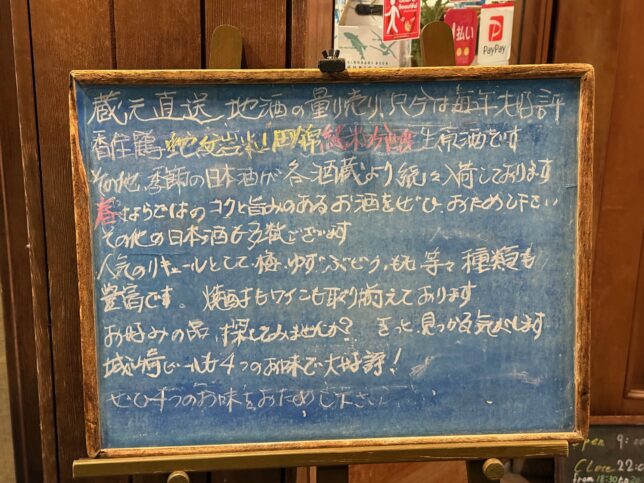 蔵元直送 地酒の量り売り 只今は毎年大好評
香住鶴 蛇紋岩米 山田錦 純米吟醸 生原酒です
その他、季節の日本酒が各酒蔵より続々入荷しております
春ならではのコクと旨みのあるお酒をぜひ、おためし下さい
その他の日本酒も多数ございます
人気のリキュールとして、梅、ゆず、ぶどう、もも、等々 種類も
豊富です。 焼酎もワインも取り揃えてあります
お好みの品、探してみませんか? きっと見つかる気がします
城崎ビールも4つのお味で大好評!
ぜひ4つのお味をおためし下さい
払い
PayPay
Open 9:00
Close 22:0
from 18:30 to